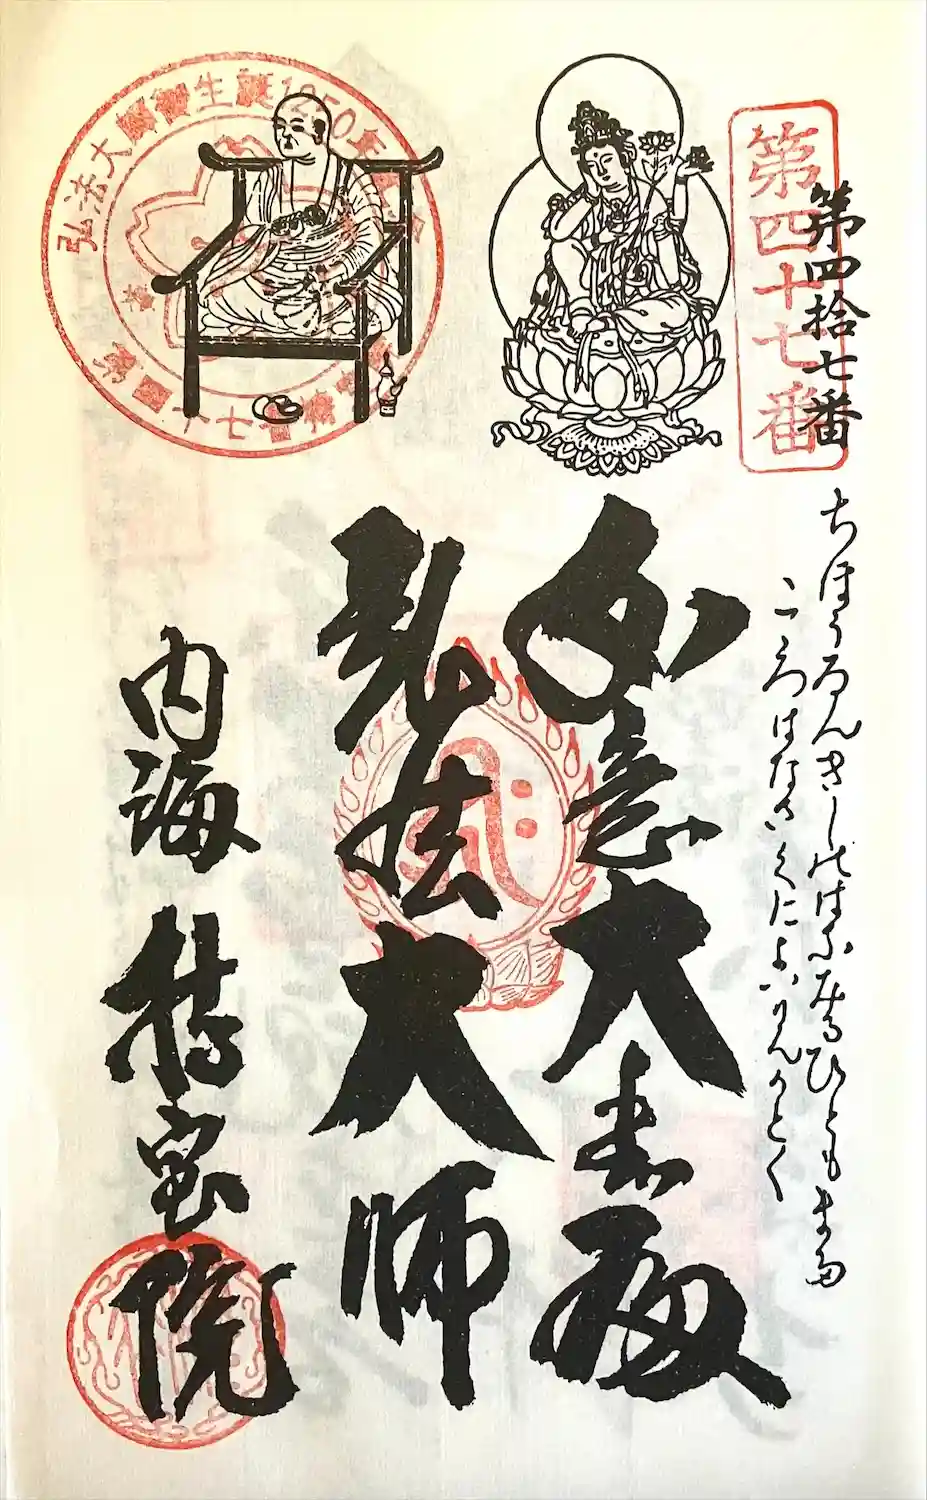 第四十七番
第四拾七番
ちほうゐんきしのはなみるひともまた
こころはなさくによいりんのとく
如意大 殿
弘法大師
内海 持宝院
弘法大師 生誕1250年